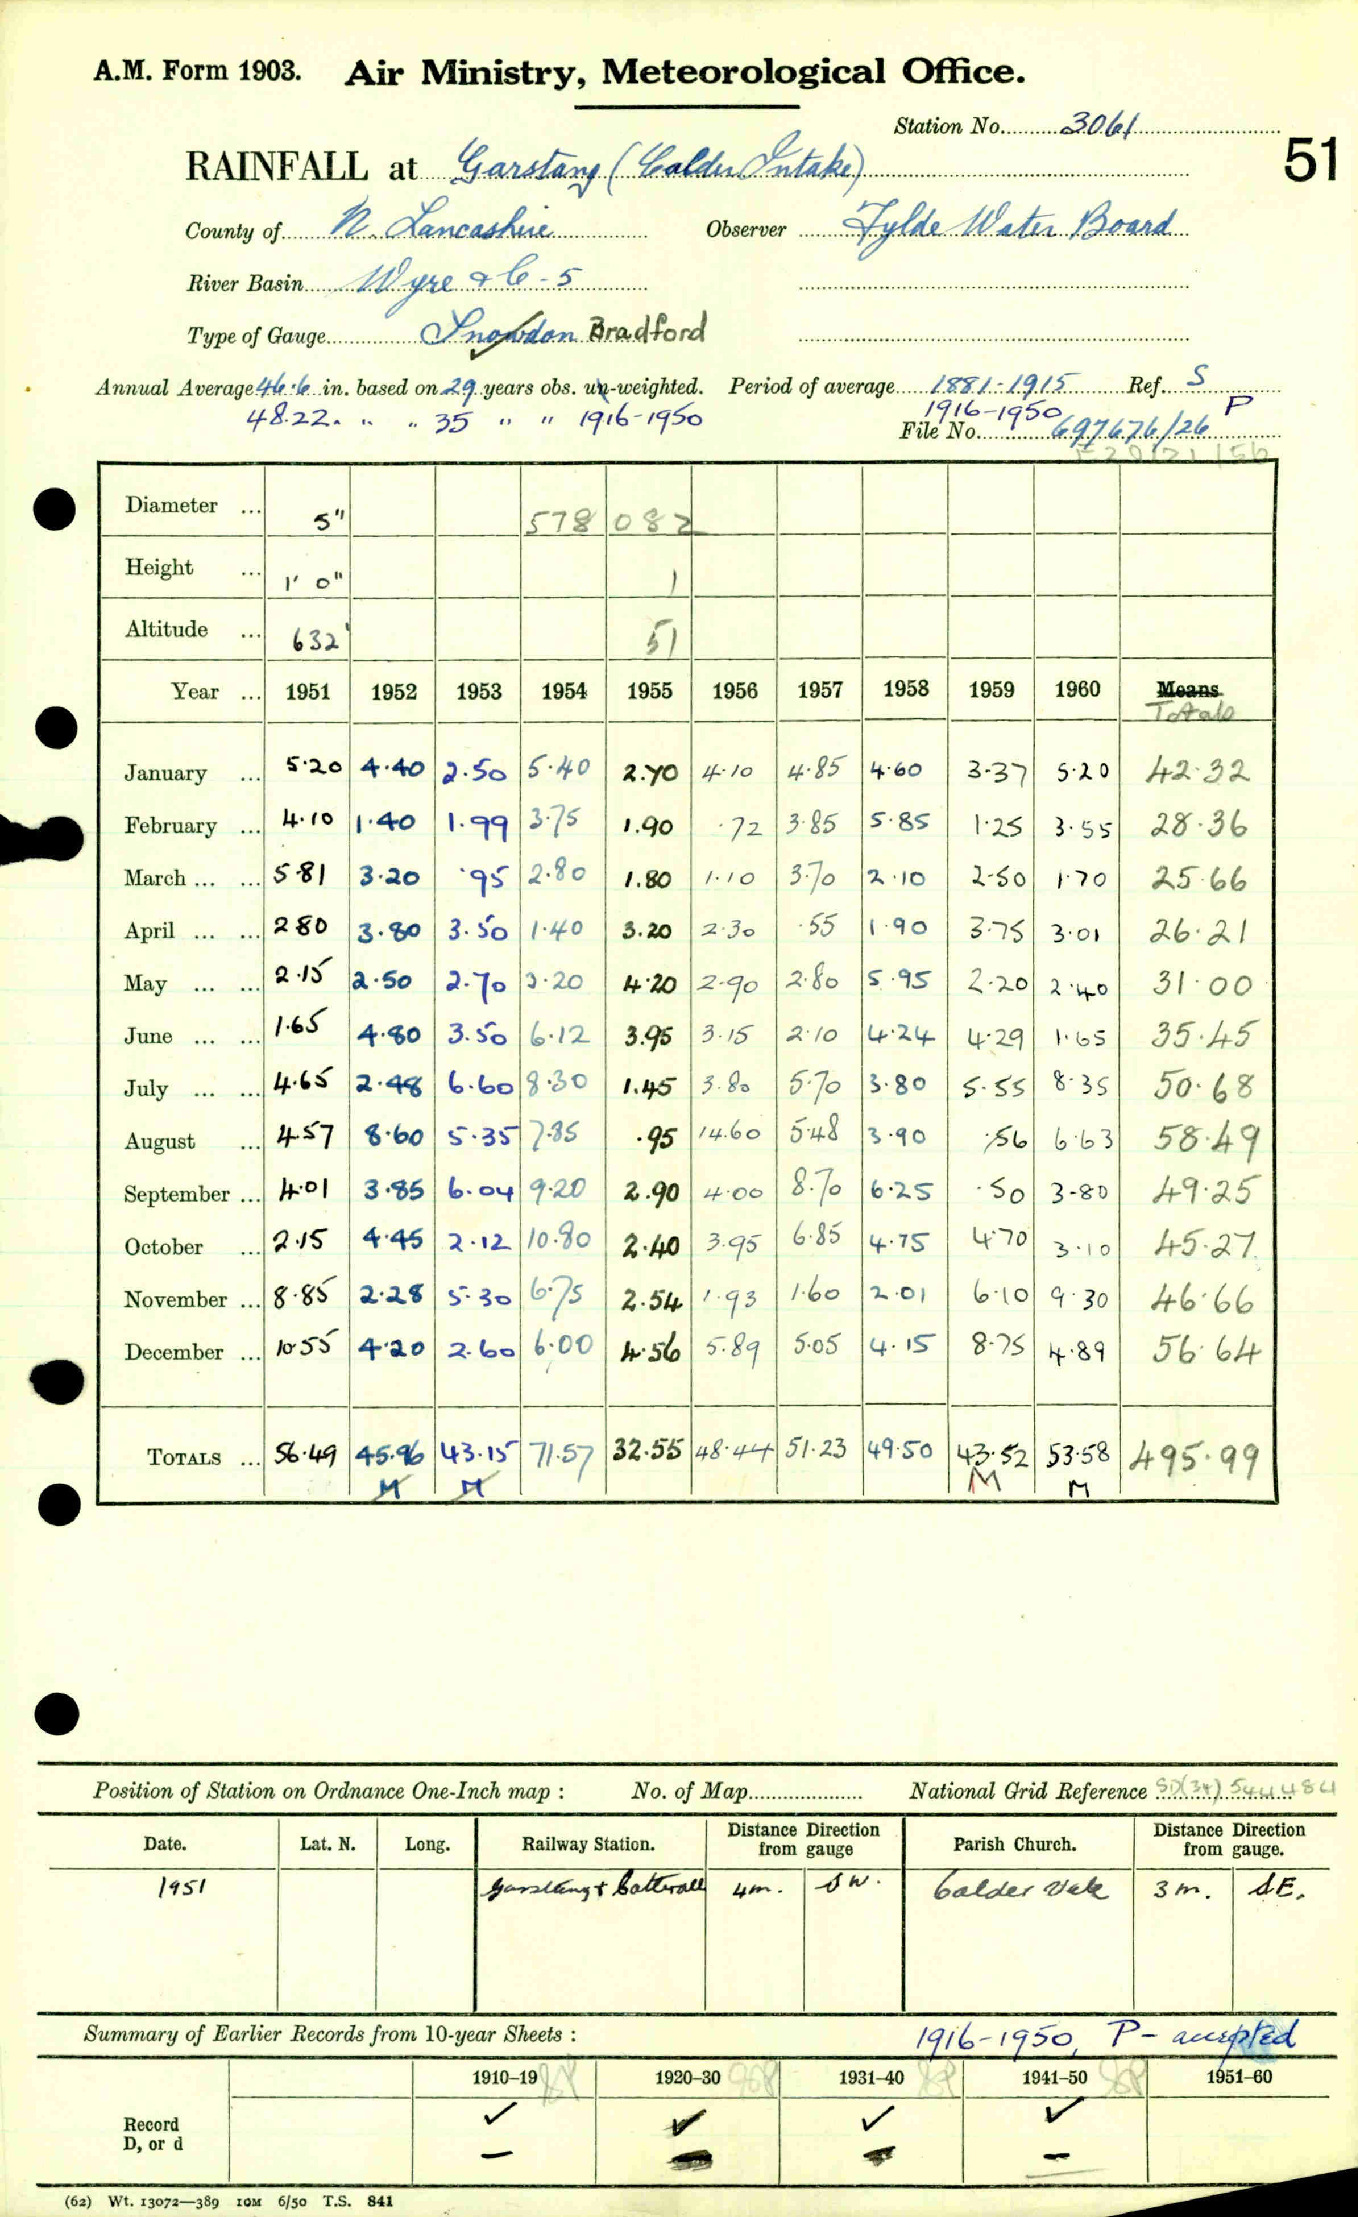 A.M. Form 1903. Air Ministry, Meteorological Office.
Station No. 3061
51
RAINFALL at Garstang (Calder Intake)
County of N. Lancashire Observer Fylde Water Board
River Basin Wyre & C-5
Type of Gauge Snowdon Bradford
Annual Average 46.6 in. based on 29 years obs. un-weighted. Period of average 1881-1915 Ref. S
48.22. " " 35 " " 1916-1950 1916-1950 P
File No. 697676/26
Diameter ... 5" 578 082
Height ... 1' 0" 1
Altitude ... 632' 51
Year ... 1951 1952 1953 1954 1955 1956 1957 1958 1959 1960 Means
Totals
January ... 5.20 4.40 2.50 5.40 2.70 4.10 4.85 4.60 3.37 5.20 42.32
February ... 4.10 1.40 1.99 3.75 1.90 .72 3.85 5.85 1.25 3.55 28.36
March ... ... 5.81 3.20 .95 2.80 1.80 1.10 3.70 2.10 2.50 1.70 25.66
April ... ... 2.80 3.80 3.50 1.40 3.20 2.30 .55 1.90 3.75 3.01 26.21
May ... ... 2.15 2.50 2.70 3.20 4.20 2.90 2.80 5.95 2.20 2.40 31.00
June ... ... 1.65 4.80 3.50 6.12 3.95 3.15 2.10 4.24 4.29 1.65 35.45
July ... ... 4.65 2.48 6.60 8.30 1.45 3.80 5.70 3.80 5.55 8.35 50.68
August ... 4.57 8.60 5.35 7.85 .95 14.60 5.48 3.90 .56 6.63 58.49
September ... 4.01 3.85 6.04 9.20 2.90 4.00 8.70 6.25 .50 3.80 49.25
October ... 2.15 4.45 2.12 10.80 2.40 3.95 6.85 4.75 4.70 3.10 45.27
November ... 8.85 2.28 5.30 6.75 2.54 1.93 1.60 2.01 6.10 9.30 46.66
December ... 10.55 4.20 2.60 6.00 4.56 5.89 5.05 4.15 8.75 4.89 56.64
TOTALS ... 56.49 45.96 43.15 71.57 32.55 48.44 51.23 49.50 43.52 53.58 495.99
M M M M
Position of Station on Ordnance One-Inch map : No. of Map National Grid Reference SD(34) 544484
Date. Lat. N. Long. Railway Station. Distance from gauge Direction Parish Church. Distance from gauge. Direction
1951 Garstang & Catterall 4m. SW. Calder Vale 3 m. SE.
Summary of Earlier Records from 10-year Sheets : 1916-1950, P- accepted
1910-19 1920-30 1931-40 1941-50 1951-60
Record ✓ ✓ ✓ ✓
D, or d – – –
(62) Wt. 13072—389 10M 6/50 T.S. 841